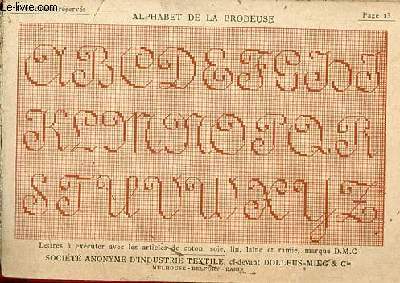 www.le-livre.com
réservés
ALPHABET DE LA BRODEUSE Page 13
A B C D E F G H I
K L M N O P Q R
S T U V W X Y Z
Lettres à exécuter avec les articles de coton, soie, lin, laine et ramie, marque D.M.C
SOCIÉTÉ ANONYME D'INDUSTRIE TEXTILE, ci-devant DOLLFUS-MIEG & Cie
MULHOUSE - BELFORT - PARIS